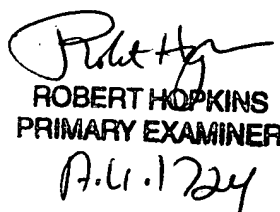 Robert Hopkins
ROBERT HOPKINS
PRIMARY EXAMINER
A.U. 1724